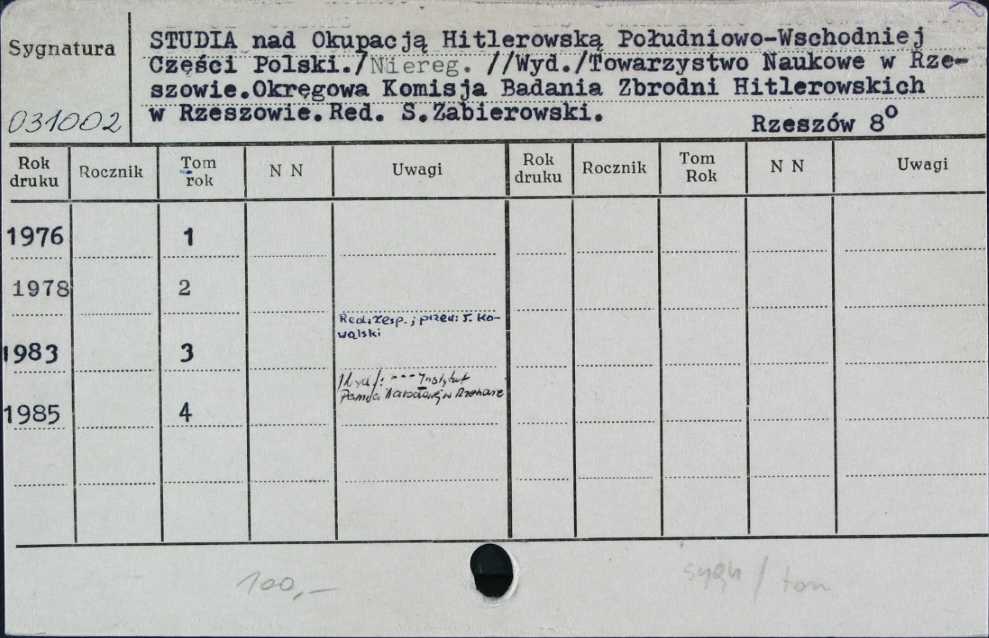 Sygnatura
031002
STUDIA nad Okupacją Hitlerowską Południowo-Wschodniej
Części Polski./Niereg. //Wyd./Towarzystwo Naukowe w Rze-
szowie.Okręgowa Komisja Badania Zbrodni Hitlerowskich
w Rzeszowie.Red. S.Zabierowski.
Rzeszów 8°
Rok druku Rocznik Tom rok N N Uwagi Rok druku Rocznik Tom Rok N N Uwagi
1976 1
1978 2
Red. zesp.; przew: J. Ko-
walski
1983 3
/Wyd/: --- Instytut
Pamięci Narodowej w
1985 4
100,-
sygn / tom